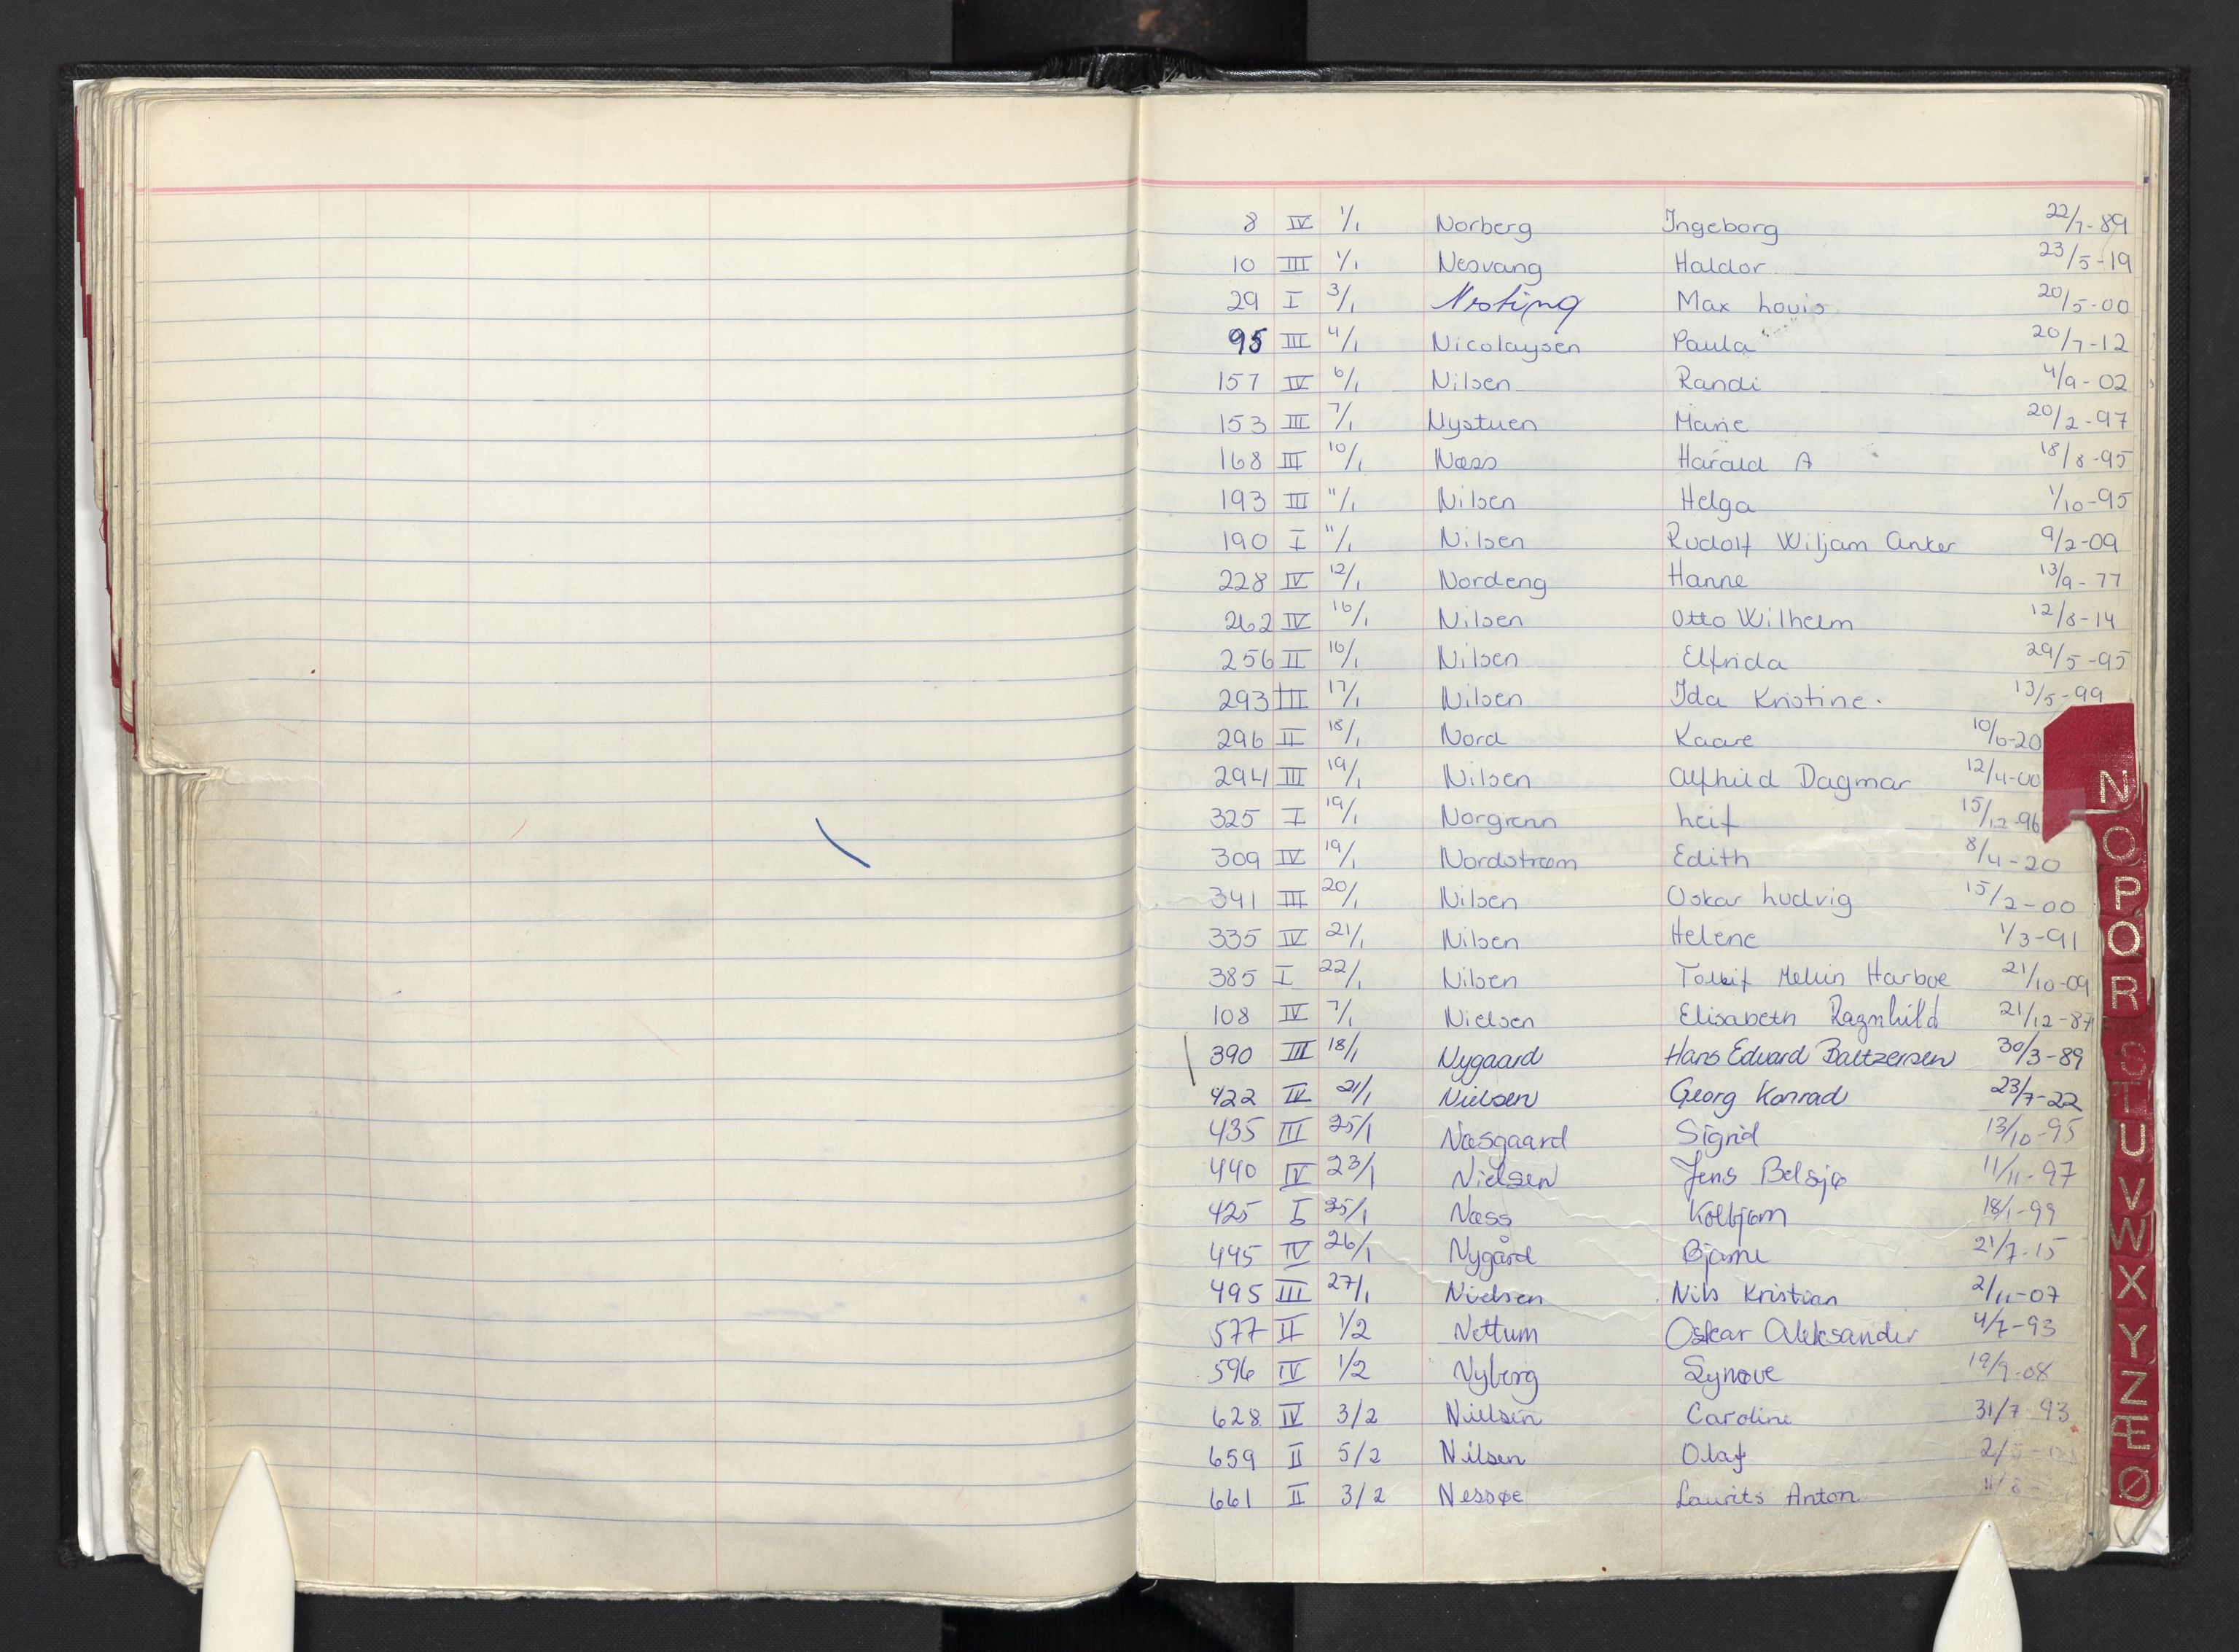 8 IV 1/1 Norberg Ingeborg 22/7-89
10 III 1/1 Nesvang Haldor 23/5-19
29 I 3/1 Max Louis 20/5-00
95 III 4/1 Nicolaysen Paula 20/7-12
157 IV 6/1 Nilsen Randi 4/9-02
153 III 7/1 Nystuen Marie 20/2-97
168 III 10/1 Næss Harald A 18/8-95
193 III 11/1 Nilsen Helga 1/10-95
190 I 11/1 Nilsen Rudolf Wiljam Anker 9/2-09
228 IV 12/1 Nordeng Hanne 13/9-77
262 IV 16/1 Nilsen Otto Wilhelm 12/8-14
256 II 16/1 Nilsen Elfrida 29/5-95
293 III 17/1 Nilsen Ida Kristine. 13/5-99
296 II 18/1 Nord Kaare 10/6-20
294 III 19/1 Nilsen Alfhild Dagmar 12/4-00
325 I 19/1 Norgrenn Leif 15/12-96
309 IV 19/1 Nordstrøm Edith 8/4-20
341 III 20/1 Nilsen Oskar Ludvig 15/2-00
335 IV 21/1 Nilsen Helene 1/3-91
385 I 22/1 Nilsen Harboe 21/10-09
108 IV 7/1 Nielsen Elisabeth Ragnhild 21/12-87
390 III 18/1 Nygaard Hans Edvard Baltzersen 30/3-89
422 IV 21/1 Nielsen Georg Konrad 23/7-22
435 III 25/1 Næsgaard Sigrid 13/10-95
440 IV 23/1 Nielsen Jens Belsjø 11/11-97
425 I 25/1 Næss Kolbjørn 18/1-99
445 IV 26/1 Nygård Bjarne 21/7-15
495 III 27/1 Nielsen Nils Kristian 2/11-07
577 II 1/2 Nettum Oskar Aleksander 4/7-93
596 IV 1/2 Nyberg Synøve 19/9-08
628 IV 3/2 Nielsen Caroline 31/7-93
659 II 5/2 Nilsen Olaf
661 II 3/2 Nessøe Laurits Anton
N
O
P
Q
R
S
T
U
V
W
X
Y
Z
Æ
Ø